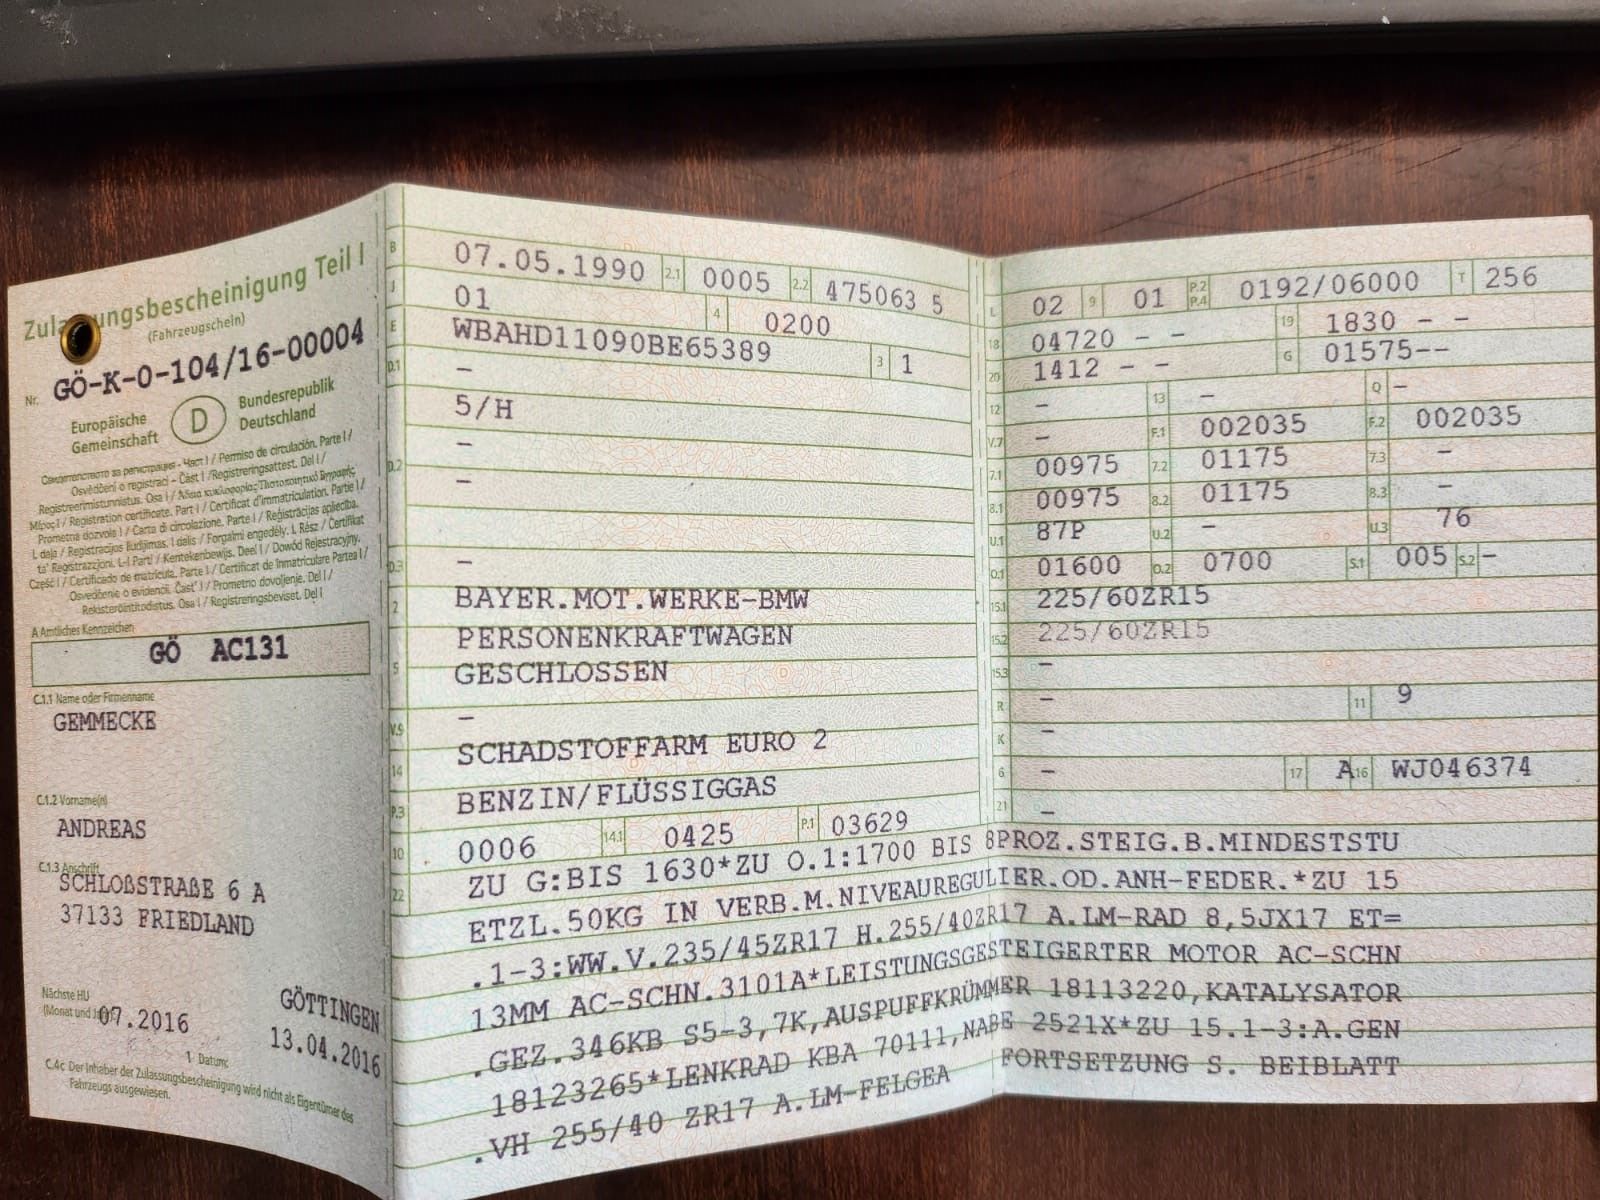 Zulassungsbescheinigung Teil I
(Fahrzeugschein)
Nr. GÖ-K-0-104/16-00004
Europäische Gemeinschaft
D
Bundesrepublik Deutschland
Свидетелство за регистрация - Част I / Permiso de circulación. Parte I /
Osvědčení o registraci - Část I / Registreringsattest. Del I /
Registreerimistunnistus. Osa I / Άδεια κυκλοφορίας/Πιστοποιητικό Εγγραφής
Μέρος I / Registration certificate. Part I / Certificat d'immatriculation. Partie I /
Prometna dozvola I / Carta di circolazione. Parte I / Reģistrācijas apliecība.
I. daļa / Registracijos liudijimas. I dalis / Forgalmi engedély. I. Rész / Ċertifikat
ta' Reġistrazzjoni. L-I Parti / Kentekenbewijs. Deel I / Dowód Rejestracyjny.
Część I / Certificado de matrícula. Parte I / Certificat de Înmatriculare Partea I /
Osvedčenie o evidencii. Časť I / Prometno dovoljenje. Del I /
Rekisteröintitodistus. Osa I / Registreringsbeviset. Del I
A Amtliches Kennzeichen
GÖ AC131
C.1.1 Name oder Firmenname
GEMMECKE
C.1.2 Vorname(n)
ANDREAS
C.1.3 Anschrift
SCHLOßSTRAßE 6 A
37133 FRIEDLAND
Nächste HU
(Monat und Jahr) 07.2016
GÖTTINGEN
13.04.2016
Datum:
C.4c Der Inhaber der Zulassungsbescheinigung wird nicht als Eigentümer des
Fahrzeugs ausgewiesen.
B 07.05.1990 2.1 0005 2.2 475063 5
J 01 4 0200
E WBAHD11090BE65389 3 1
D.1 –
5/H
–
D.2 –
D.3 –
2 BAYER.MOT.WERKE-BMW
PERSONENKRAFTWAGEN
5 GESCHLOSSEN
–
V.9 SCHADSTOFFARM EURO 2
14 BENZIN/FLÜSSIGGAS
P.3
10 0006 14.1 0425 P.1 03629
L 02 9 01 P.2 P.4 0192/06000 T 256
18 04720 – – 19 1830 – –
20 1412 – – G 01575--
12 – 13 – Q –
V.7 – F.1 002035 F.2 002035
7.1 00975 7.2 01175 7.3 –
8.1 00975 8.2 01175 8.3 –
U.1 87P U.2 – U.3 76
O.1 01600 O.2 0700 S.1 005 S.2 –
15.1 225/60ZR15
15.2 225/60ZR15
15.3 –
R – 11 9
K –
6 – 17 A 16 WJ046374
21 –
22 ZU G:BIS 1630*ZU O.1:1700 BIS 8PROZ.STEIG.B.MINDESTSTU
ETZL.50KG IN VERB.M.NIVEAUREGULIER.OD.ANH-FEDER.*ZU 15
.1-3:WW.V.235/45ZR17 H.255/40ZR17 A.LM-RAD 8,5JX17 ET=
13MM AC-SCHN.3101A*LEISTUNGSGESTEIGERTER MOTOR AC-SCHN
.GEZ.346KB S5-3,7K,AUSPUFFKRÜMMER 18113220,KATALYSATOR
18123265*LENKRAD KBA 70111,NABE 2521X*ZU 15.1-3:A.GEN
.VH 255/40 ZR17 A.LM-FELGEA FORTSETZUNG S. BEIBLATT